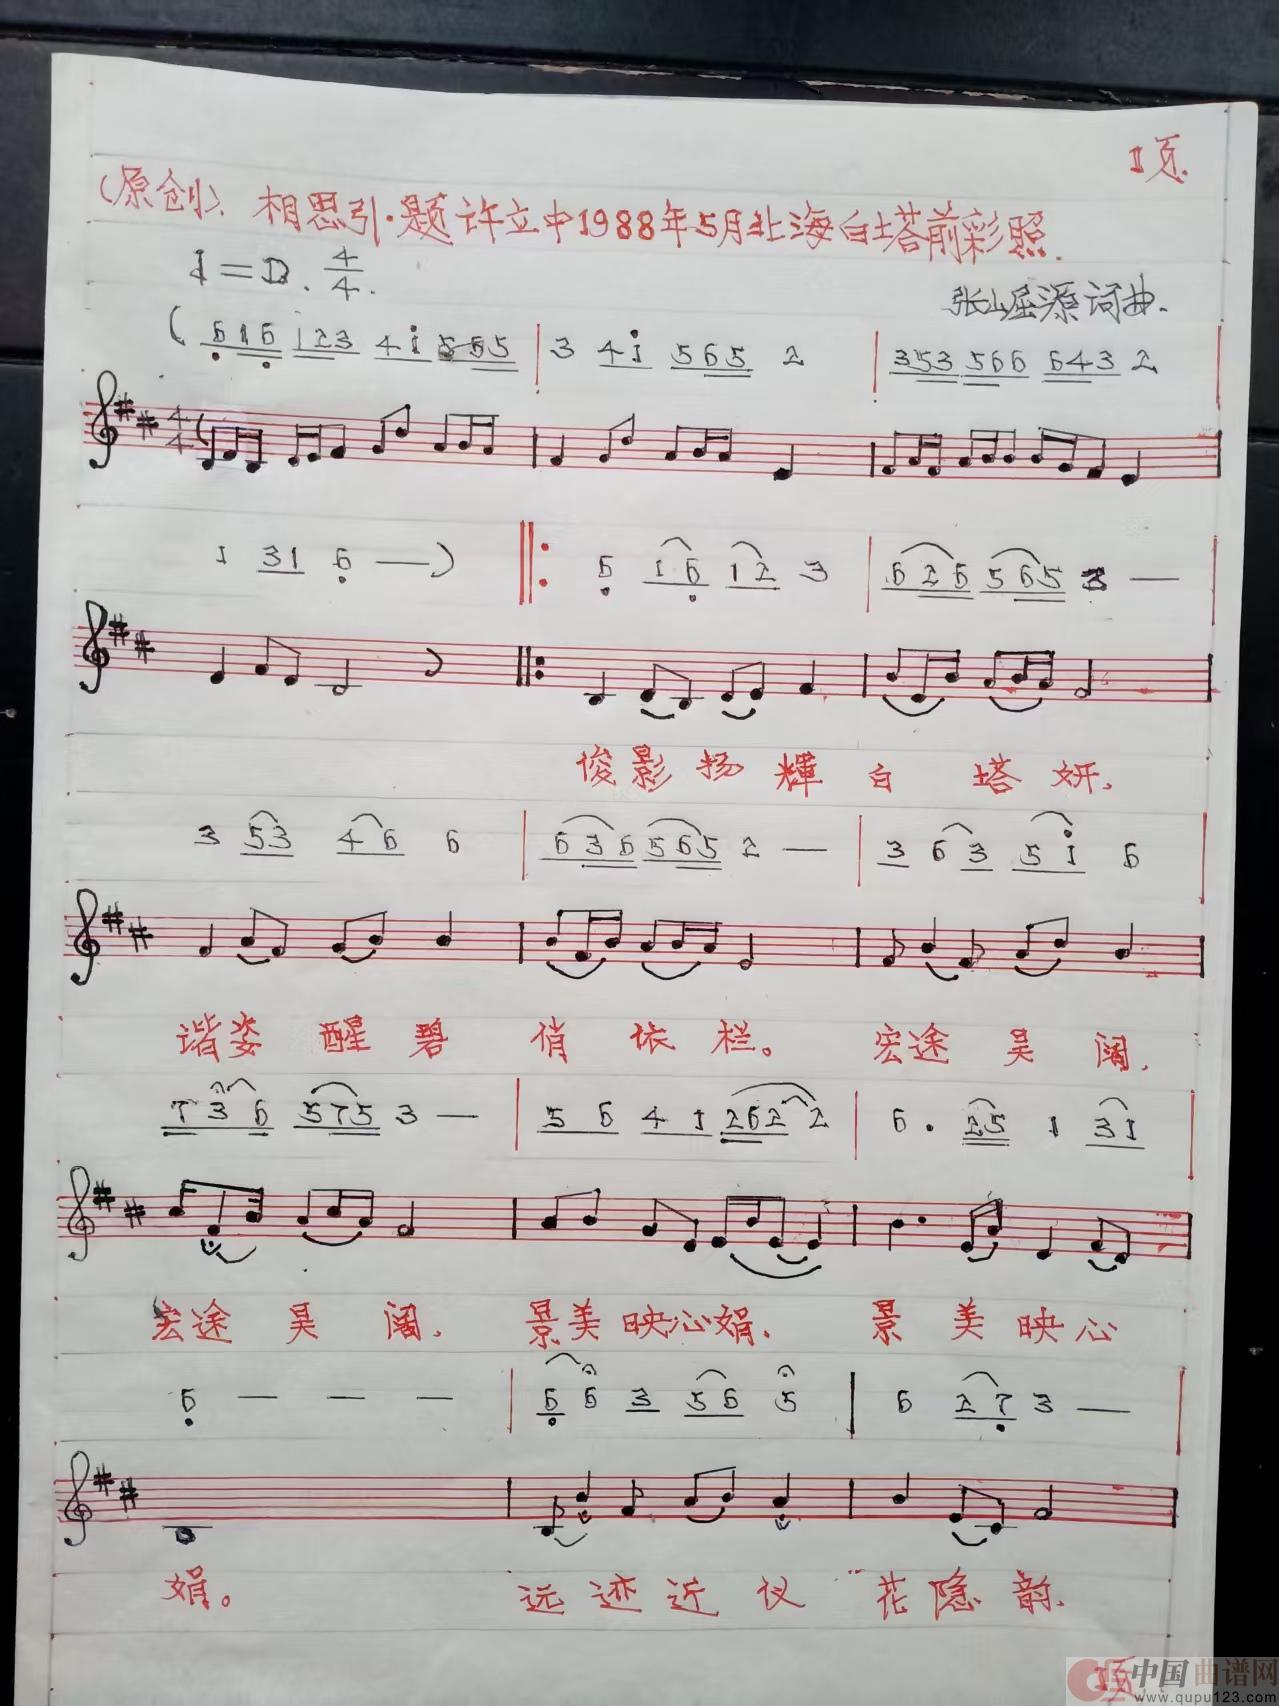 1页.
(原创). 相思引·题许立中1988年5月北海白塔前彩照.
1=D. 4/4.
张山屈源 词曲.
( 616 123 41 5 65 | 3 41 565 2 | 353 566 643 2 |
1 31 6 — ) ‖: 6 16 12 3 | 626 565 3 — |
俊影扬輝白塔妍,
3 53 46 6 | 636 565 2 — | 3 6 3 51 6
谐姿醒碧俏依栏。宏途昊阔,
7 3 6 575 3 — | 56 41 262 2 | 6. 25 1 31 |
宏途昊阔,景美映心娟.景美映心
6 — — — | 6 6 3 56 5 | 6 27 3 — |
娟。远迹近仪花隐韵.
中国曲谱网
www.qupu123.com